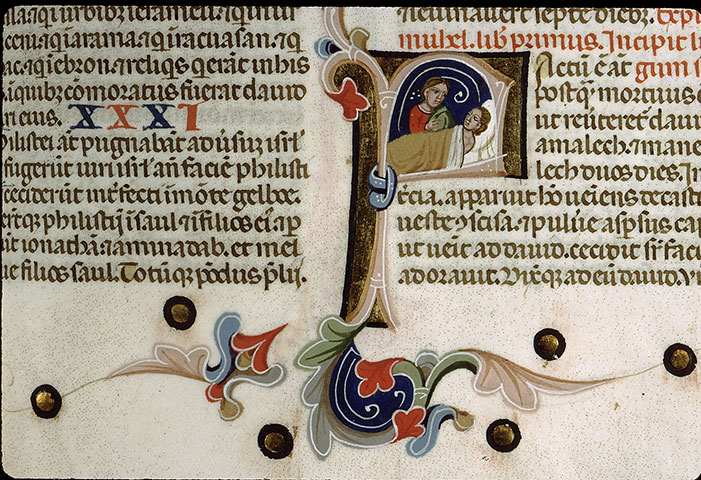 la. ⁊ qi urbibz ierameli. ⁊ qi i ur
ceni. ⁊ qi arama. ⁊ qi racuasan. ⁊ q
ac. ⁊ qi ebron. ⁊ reliqs q erāt in his
i quibz cōmoratus fuerat dauid
ri eius. XXXI
ilistei āt pugnabāt aduſuz iſrl
fugerūt uiri iſrl añ faciē philiſti
ceciderūt īterfecti i mōte gelboe.
ertq; philiſtij i ſaul ⁊ i filios ei. ⁊ p
ūt ionathā ⁊ aminadab. et mel
ue filios ſaul. Totūq; pōdus plij.
ieiunauert ſeptē diebz. Expl
muhel. lib primus. Incipit li
FActū ē āt
poſtq̄ mortuus e
ut reuteret dauı
amalech. ⁊ mane
lech duos dies. In
tcia. apparuit hō ueiens de caſt
ueſte ꝯſciſa. ⁊ puluie aſpſus cap
ut ueit ad dauid. cecidit ſr faci
adorauit. Dixitq; ad eū dauid. Vn